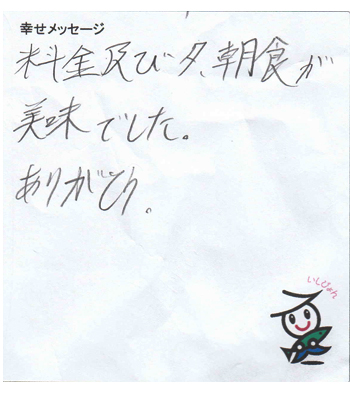 幸せメッセージ
料金及び夕、朝食が
美味でした。
ありがとう。
いしぴょん